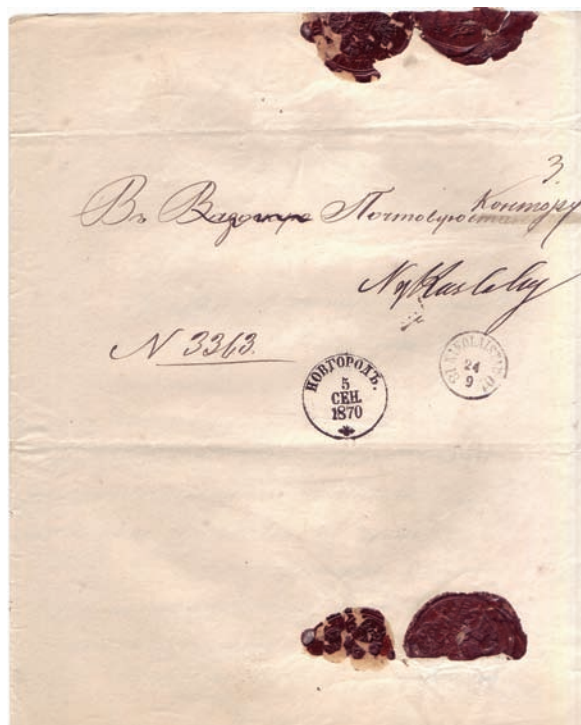 3
Въ Контору
NyKarleby
N 3363.
НОВГОРОДЪ.
5
СЕН.
1870
24
9